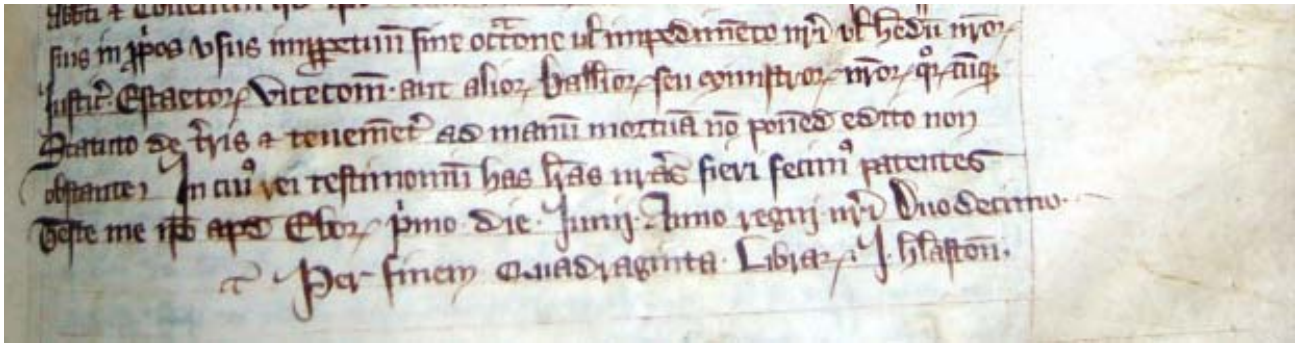 suis in ꝓp̄os vsus imꝑpetuū sine occōne ul̄ impedimēto nr̄i ul̄ hedū nr̄oꝝ
Justic̄. Escaetoꝝ Vicecom̄. aut alioꝝ balliōꝝ seu ministroꝝ nr̄oꝝ quoꝝcūqꝫ
Statuto de tr̄is & tenemēt̄ ad manū mortuā nō ponēd edito non
obstante In cuiꝰ rei testimoniū has lr̄as nr̄as fieri fecimꝰ patentes
Teste me ip̄o apd Eboꝝ p̄mo die Junij Anno regnj nr̄i Duodecimo.
Per finem Quadraginta Libraꝝ